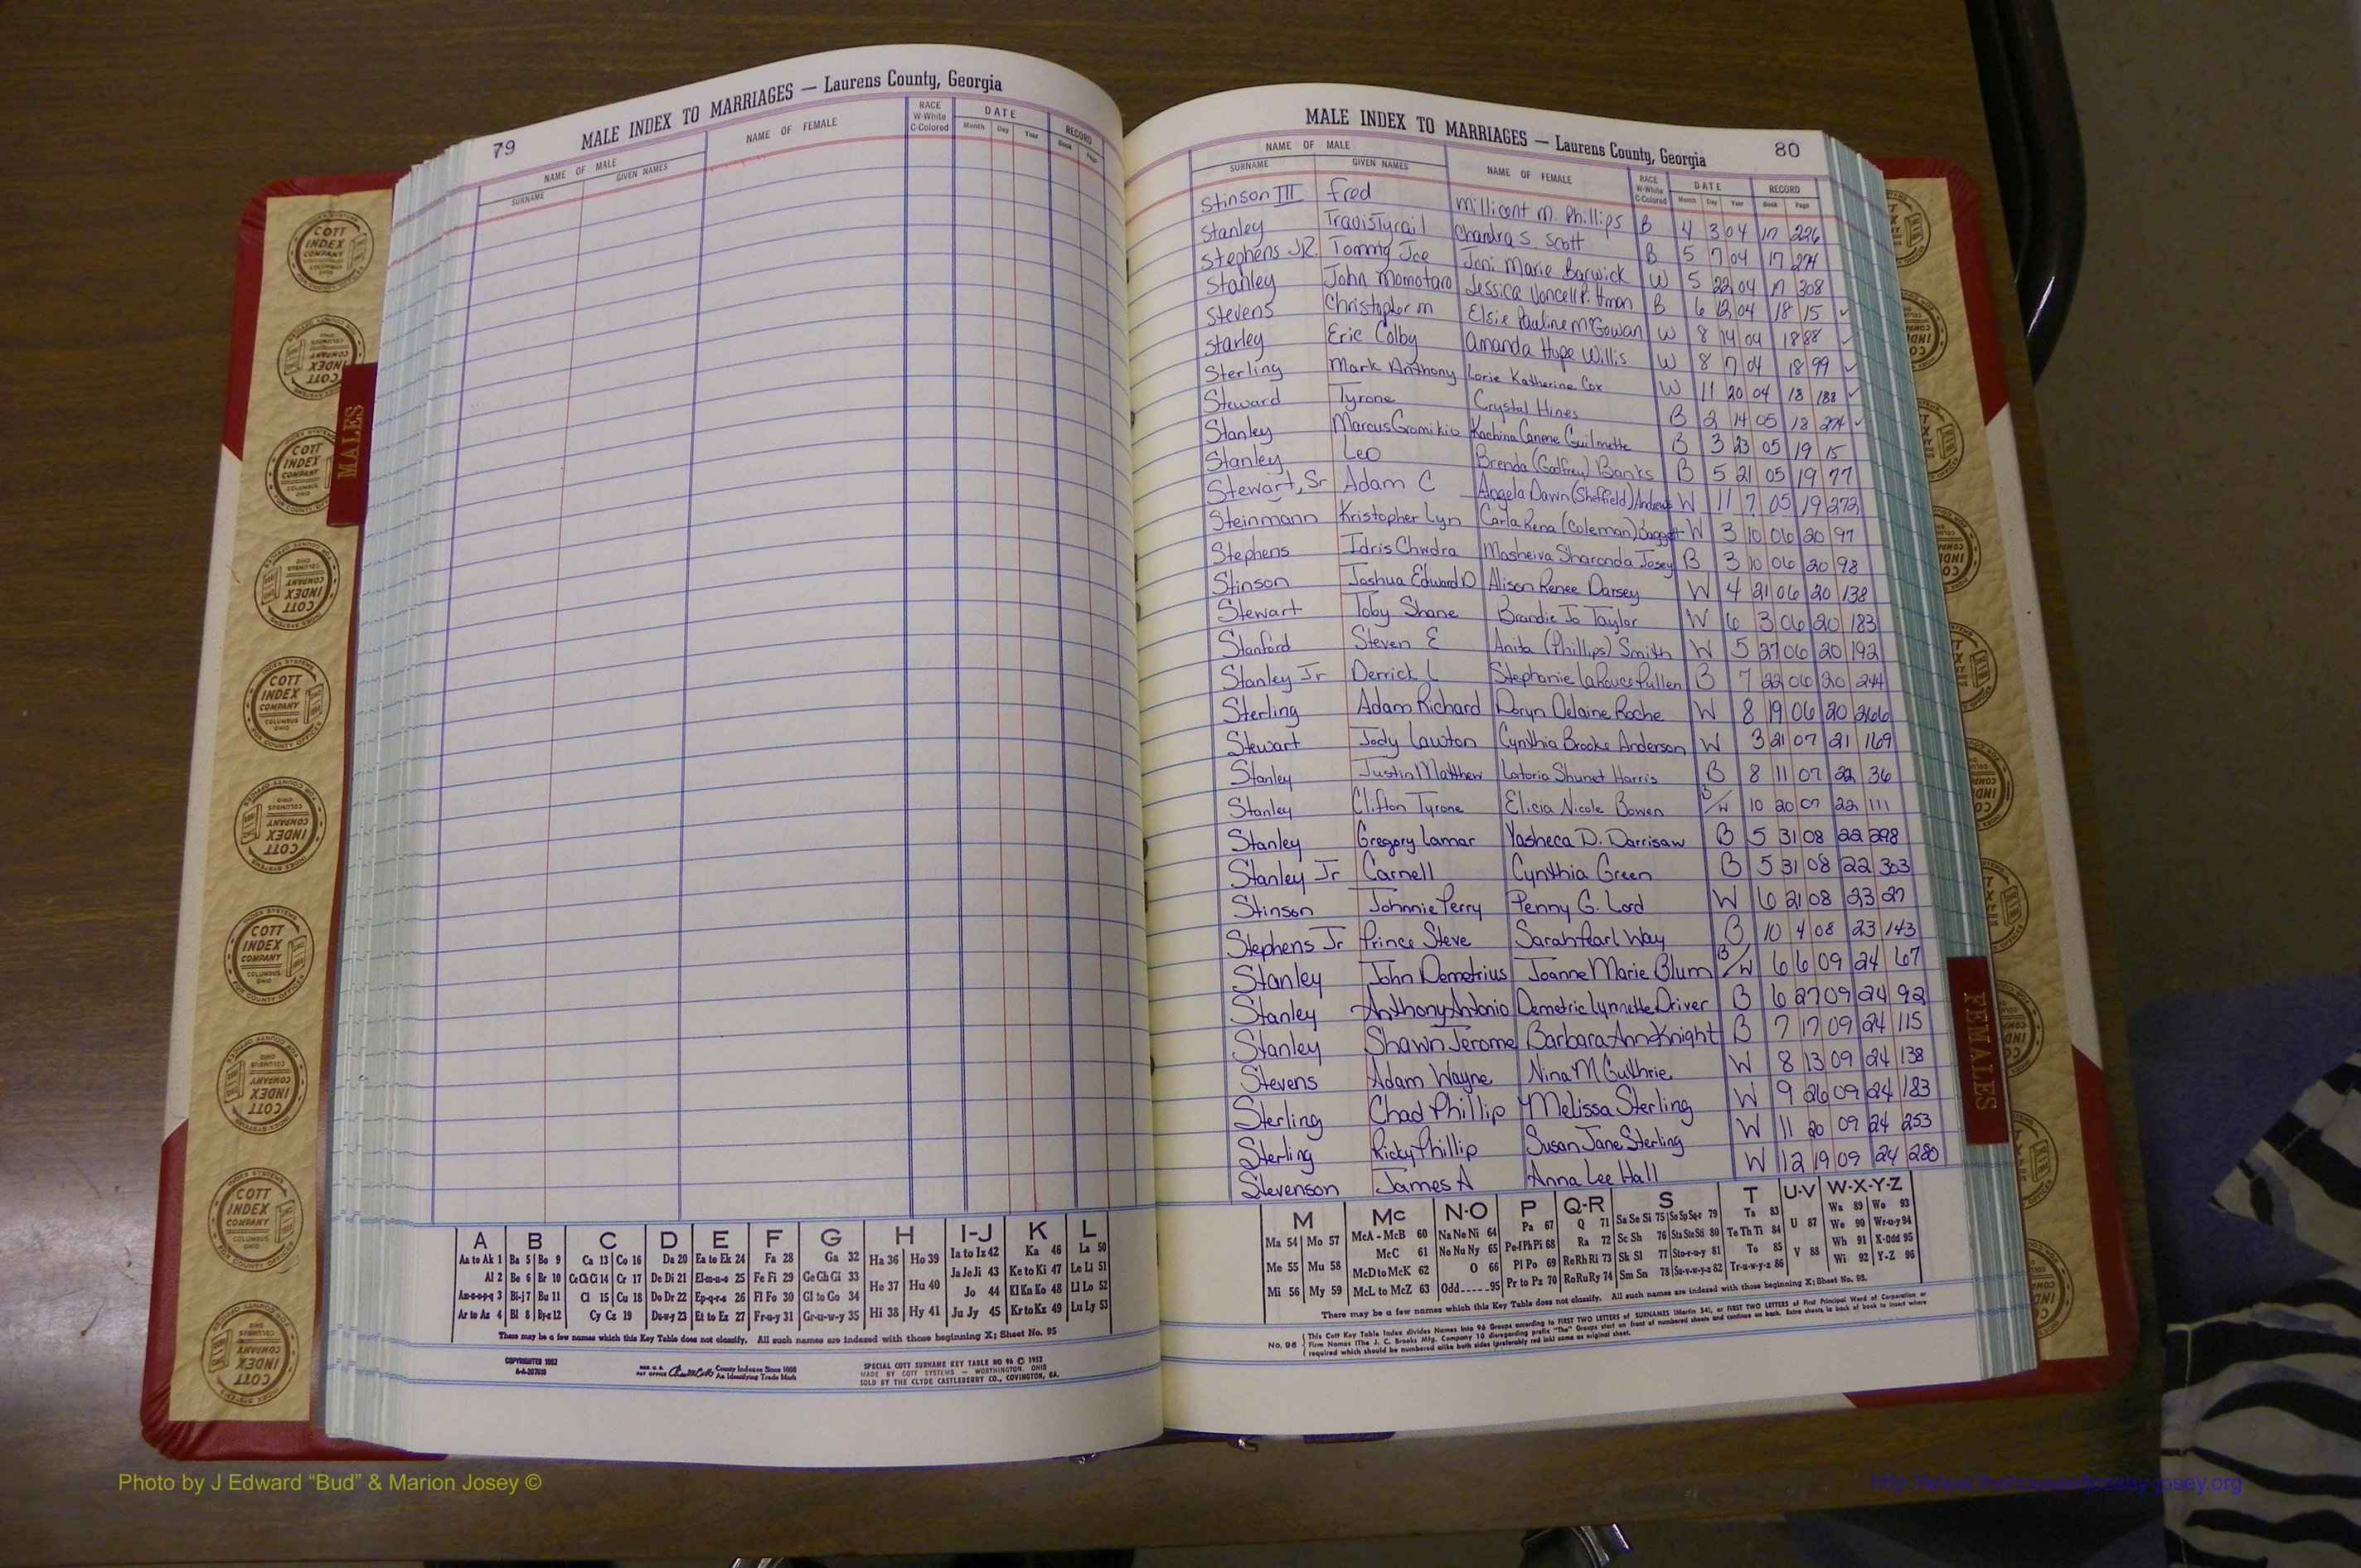 79
MALE INDEX TO MARRIAGES — Laurens County, Georgia
NAME OF MALE
SURNAME GIVEN NAMES
NAME OF FEMALE
RACE
W-White
C-Colored
DATE
Month Day Year
RECORD
Book Page
A B C D E F G H I-J K L
Aa to Ak 1 Ba 5 Bo 9 Ca 13 Co 16 Da 20 Ea to Ek 24 Fa 28 Ga 32 Ha 36 Ho 39 Ia to Iz 42 Ka 46 La 50
Al 2 Be 6 Br 10 Ce Ch Ci 14 Cr 17 De Di 21 El-m-n-o 25 Fe Fi 29 Ge Gh Gi 33 He 37 Hu 40 Ja Je Ji 43 Ke to Ki 47 Le Li 51
Am-n-o-p-q 3 Bi-j 7 Bu 11 Cl 15 Cu 18 Do Dr 22 Ep-q-r-s 26 Fl Fo 30 Gl to Go 34 Hi 38 Hy 41 Jo 44 Kl Kn Ko 48 Ll Lo 52
Ar to Az 4 Bl 8 By-z 12 Cy Cz 19 Du-w-y 23 Et to Ez 27 Fr-u-y 31 Gr-u-w-y 35 Ju Jy 45 Kr to Kz 49 Lu Ly 53
There may be a few names which this Key Table does not classify. All such names are indexed with those beginning X; Sheet No. 95
COPYRIGHTED 1952
County Indexes Since 1888
An Identifying Trade Mark
SPECIAL COTT SURNAME KEY TABLE NO 96 © 1952
MADE BY COTT SYSTEMS — WORTHINGTON, OHIO
SOLD BY THE CLYDE CASTLEBERRY CO., COVINGTON, GA.
MALE INDEX TO MARRIAGES — Laurens County, Georgia
80
NAME OF MALE
SURNAME GIVEN NAMES
NAME OF FEMALE
RACE
W-White
C-Colored
DATE
Month Day Year
RECORD
Book Page
Stinson III Fred Millicent M. Phillips B 4 3 04 17 226
Stanley Travis Tyrail Chandra S Scott B 5 7 04 17 274
Stephens JR. Tommy Joe Joni Marie Barwick W 5 22 04 17 308
Stanley John Momotaro Jessica Voncell Pittman B 6 12 04 18 15
Stevens Christopher M Elsie Pauline McGowan W 8 14 04 18 88
Starley Eric Colby Amanda Hope Willis W 8 7 04 18 99
Sterling Mark Anthony Lorie Katherine Cox W 11 20 04 18 188
Steward Tyrone Crystal Hines B 2 14 05 18 274
Stanley Marcus Gromikio Kachina Canene Guilmette B 3 23 05 19 15
Stanley Leo Brenda (Godfrey) Banks B 5 21 05 19 77
Stewart, Sr Adam C Angela Dawn (Sheffield) Andrews W 11 7 05 19 272
Steinmann Kristopher Lyn Carla Rena (Coleman) Baggett W 3 10 06 20 97
Stephens Idris Chwdra Masheiva Sharonda Josey B 3 10 06 20 98
Stinson Joshua Edward D Alison Renee Darsey W 4 21 06 20 138
Stewart Toby Shane Brandie Jo Taylor W 6 3 06 20 183
Stanford Steven E Anita (Phillips) Smith W 5 27 06 20 192
Stanley Jr Derrick L Stephanie LaRouce Pullen B 7 22 06 20 244
Sterling Adam Richard Doryn Delaine Roche W 8 19 06 20 266
Stewart Jody Lawton Cynthia Brooke Anderson W 3 21 07 21 169
Stanley Justin Matthew Latoria Shunet Harris B 8 11 07 22 36
Stanley Clifton Tyrone Elicia Nicole Bowen B/W 10 20 07 22 111
Stanley Gregory Lamar Yasheca D. Darrisaw B 5 31 08 22 298
Stanley Jr Carnell Cynthia Green B 5 31 08 22 303
Stinson Johnnie Perry Penny G. Lord W 6 21 08 23 27
Stephens Jr Prince Steve Sarah Pearl Way B 10 4 08 23 143
Stanley John Demetrius Joanne Marie Blum B/W 6 6 09 24 67
Stanley Anthony Antonio Demetric Lynnette Driver B 6 27 09 24 92
Stanley Shawn Jerome Barbara Ann Knight B 7 17 09 24 115
Stevens Adam Wayne Nina M Guthrie W 8 13 09 24 138
Sterling Chad Phillip Melissa Sterling W 9 26 09 24 183
Sterling Ricky Phillip Susan Jane Sterling W 11 20 09 24 253
Stevenson James A Anna Lee Hall W 12 19 09 24 280
M Mc N-O P Q-R S T U-V W-X-Y-Z
Ma 54 Mo 57 McA - McB 60 Na Ne Ni 64 Pa 67 Q 71 Sa Se Si 75 So Sp Sq-r 79 Ta 83 U 87 Wa 89 Wo 93
Me 55 Mu 58 McC 61 No Nu Ny 65 Pe-f Ph Pi 68 Ra 72 Sc Sh 76 Sta Ste Sti 80 Te Th Ti 84 We 90 Wr-u-y 94
Mi 56 My 59 McD to McK 62 O 66 Pl Po 69 Re Rh Ri 73 Sk Sl 77 Sto-r-u-y 81 To 85 V 88 Wh 91 X-Odd 95
McL to McZ 63 Odd 95 Pr to Pz 70 Ro Ru Ry 74 Sm Sn 78 Su-v-w-y-z 82 Tr-u-w-y-z 86 Wi 92 Y-Z 96
There may be a few names which this Key Table does not classify. All such names are indexed with those beginning X; Sheet No. 95.
No. 96 This Cott Key Table Index divides Names into 96 Groups according to FIRST TWO LETTERS of SURNAMES (Martin 54), or FIRST TWO LETTERS of First Principal Word of Corporation or
Firm Names (The J. C. Brooks Mfg. Company 10 disregarding prefix "The" Groups start on front of numbered sheets and continue on back. Extra sheets in back of book to insert where
required which should be numbered alike both sides (preferably red ink) same as original sheet.
MALES
FEMALES
COTT
INDEX
COMPANY
COLUMBUS
OHIO
INDEX SYSTEMS
FOR COUNTY OFFICES
Photo by J Edward “Bud” & Marion Josey ©